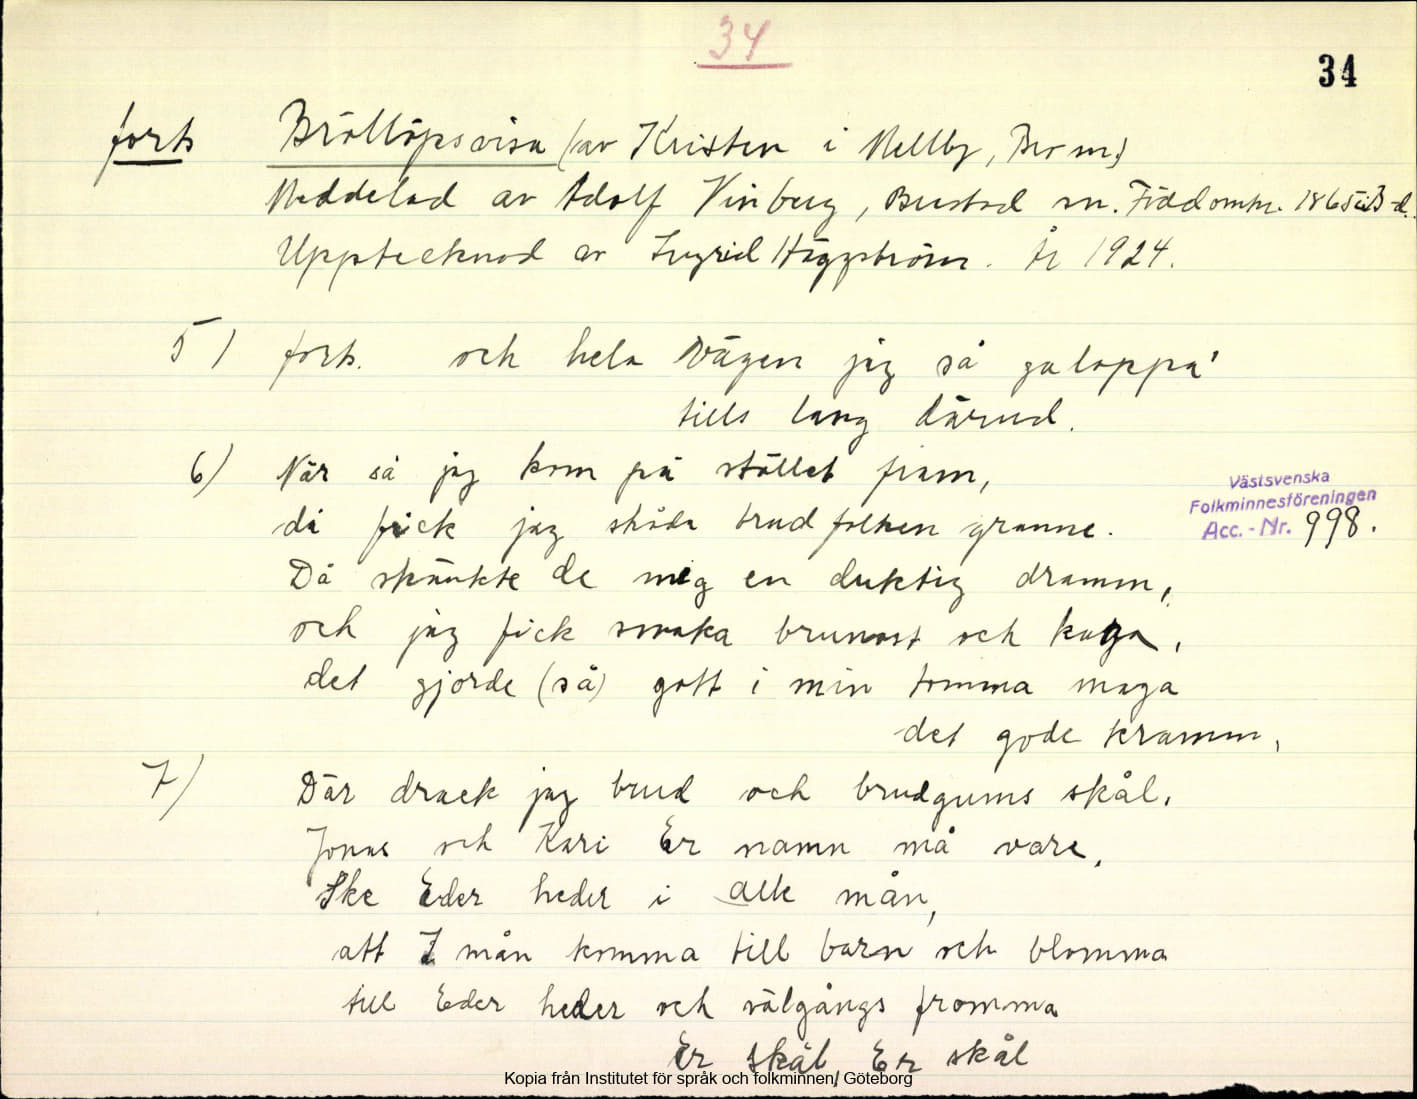 34
34
forts Bröllöpsvisa (av Kristen i Mellby, Brom.)
Meddelad av Adolf Vinberg, Bustad sn. Född omkr. 1865
Upptecknad av Ingrid Häggström. År 1924.
5) forts. och hela vägen jag så galoppa'
tills lang därud.
6) När så jag kom på stället fram,
då fick jag skåda brudfolken granne.
Då skänkte de mig en duktig dramm,
och jag fick smaka brunost och kaga,
det gjorde (så) gott i min tomma maga
det gode kramm,
Västsvenska
Folkminnesföreningen
Acc.-Nr. 998.
7) Där drack jag brud och brudgums skål.
Jonas och Kari Er namn må vare,
Ske Eder heder i alle mån,
att I mån komma till barn och blomma
till Eder heder och välgångs fromma
Er skål, Er skål
Kopia från Institutet för språk och folkminnen, Göteborg